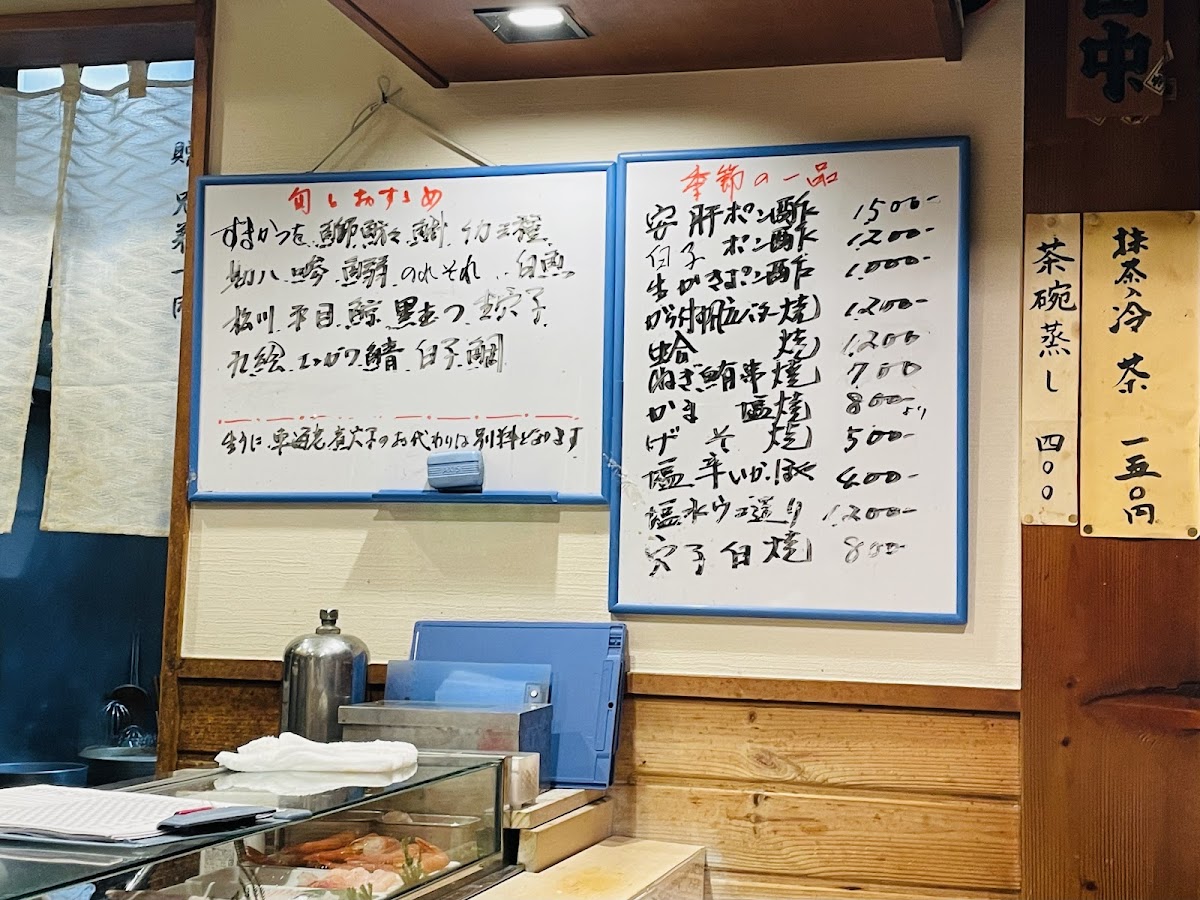 旬のおすすめ
すまかつを 鰤 鰺 鯏
勘八 鱗 のれそれ 白魚
松川 平目 鯨 黒むつ 生穴子
九絵 エンガワ 鯖 白子 鯛
生うに、車海老、煮穴子のお代わりは別料となります
季節の一品
安肝ポン酢 1500-
白子 ポン酢 1200-
生かきポン酢 1,000-
から付帆立バター焼 1,200-
蛤 焼 1,200
ねぎ鮪串焼 700
かま 塩焼 800-より
げそ焼 500-
塩辛 いか、ほや 400-
塩水ウニ造り 1,200-
穴子白焼 800-
茶碗蒸し 四〇〇
抹茶入冷茶 一五〇円
中